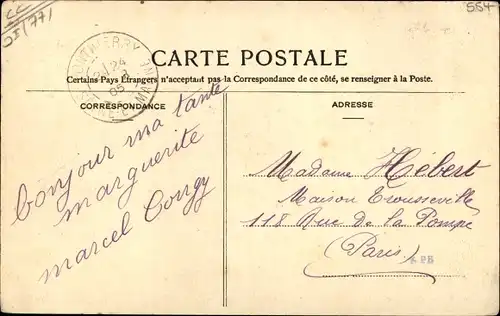 554
CARTE POSTALE
Certains Pays Étrangers n'acceptant pas la Correspondance de ce côté, se renseigner à la Poste.
CORRESPONDANCE
ADRESSE
bonjour ma tante
marguerite
marcel Cougy
Madame Hébert
Maison Trousseville
118 Rue de la Pompe
(Paris)